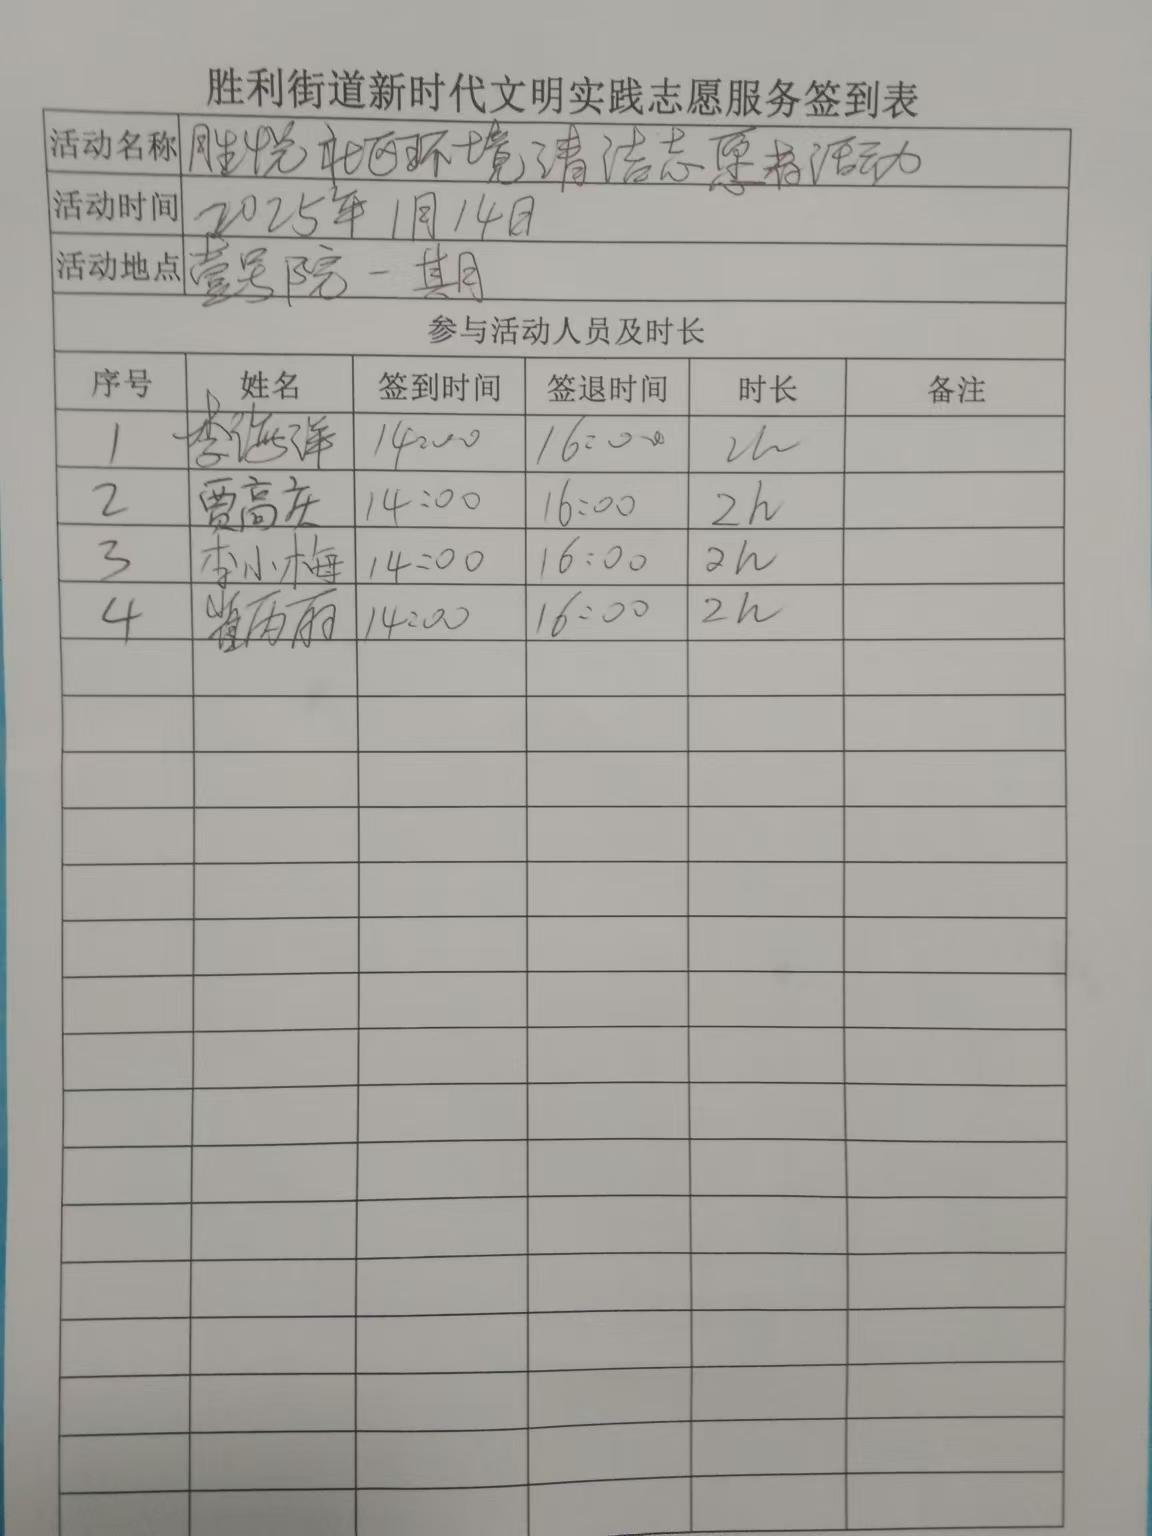 胜利街道新时代文明实践志愿服务签到表
活动名称 胜悦社区环境清洁志愿者活动
活动时间 2025年1月14日
活动地点 壹号院一期
参与活动人员及时长
序号 姓名 签到时间 签退时间 时长 备注
1 李海洋 14:00 16:00 2h
2 贾高庆 14:00 16:00 2h
3 李小梅 14:00 16:00 2h
4 丽 14:00 16:00 2h